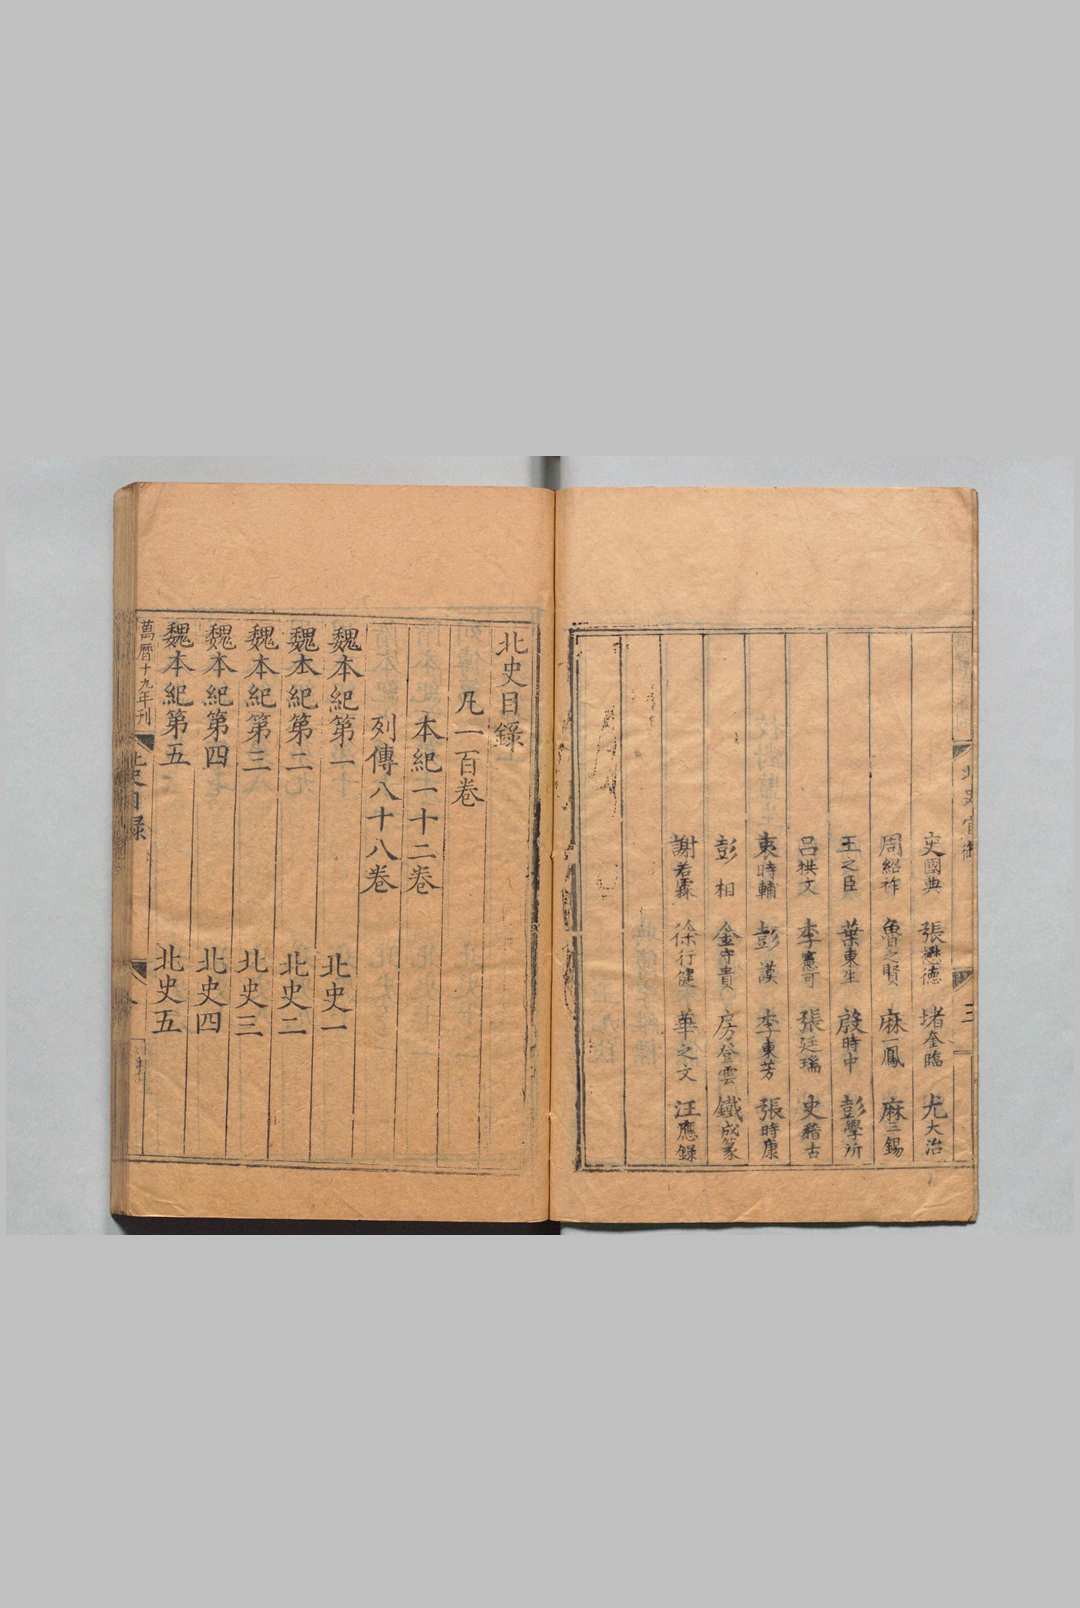 史國典 張懋德 堵奎臨 尤大治
周紹祚 魯之賢 麻一鳳 麻三錫
王之臣 葉東生 殷時中 彭學所
呂拱文 李憲可 張廷瑞 史稽古
時輔 彭漢 李東芳 張時康
彭相 金守貴 房登雲 鐵成篆
謝若霖 徐行健 華之文 汪應錄
北史目錄上
凡一百卷
本紀一十二卷
列傳八十八卷
魏本紀第一 北史一
魏本紀第二 北史二
魏本紀第三 北史三
魏本紀第四 北史四
魏本紀第五 北史五
萬曆十九年刊 北史目錄